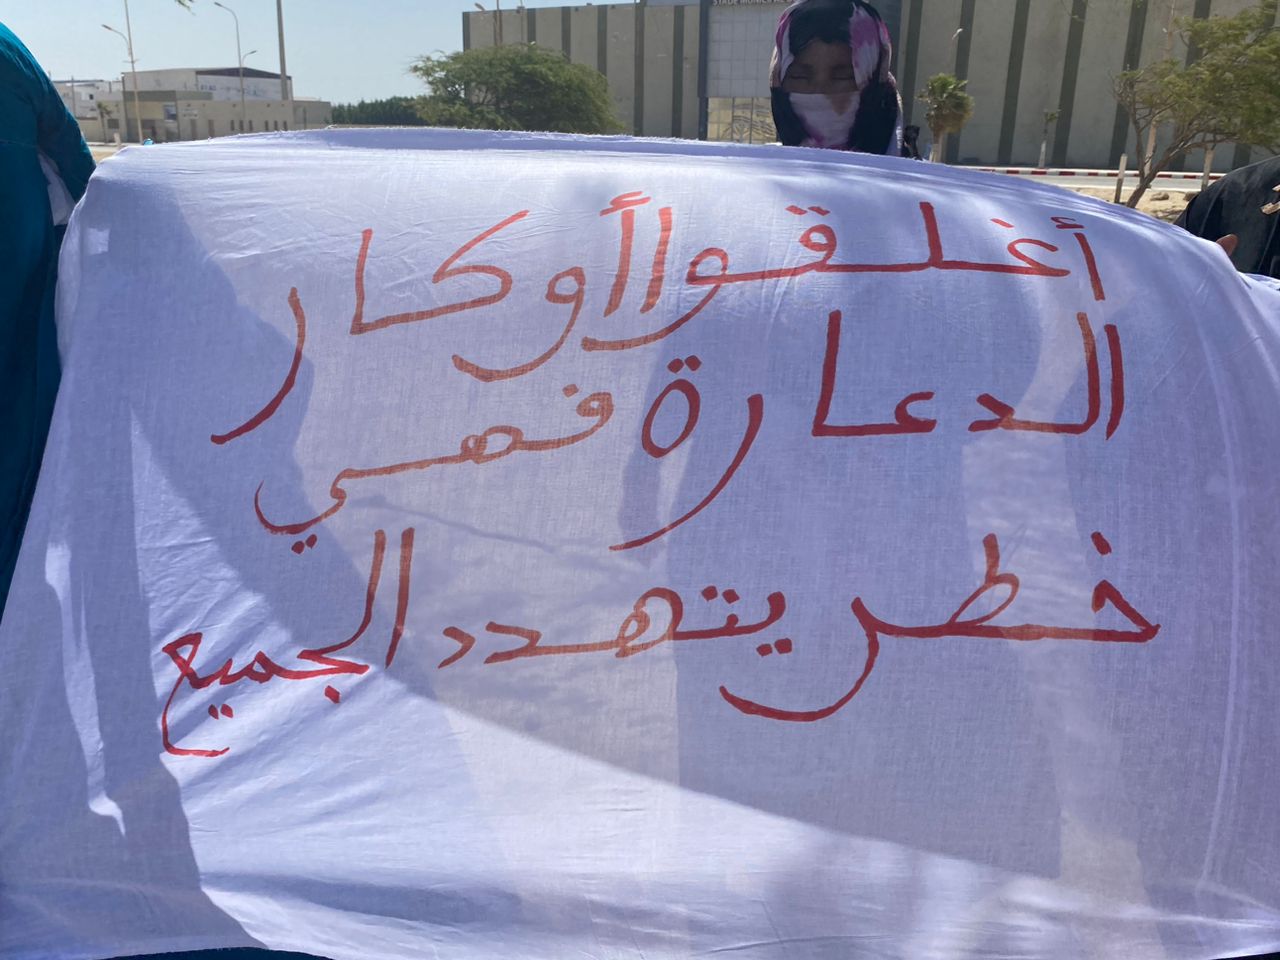 STADE MUNICIPAL
أغلقوا أوكار
الدعارة فهي
خطر يتهدد الجميع